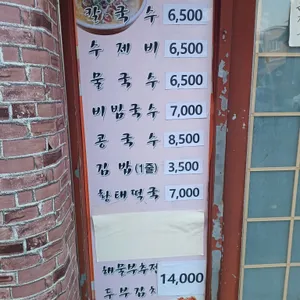 칼국수 6,500
수제비 6,500
물국수 6,500
비빔국수 7,000
콩국수 8,500
김밥(1줄) 3,500
황태떡국 7,000
해물부추전 14,000
두부김치